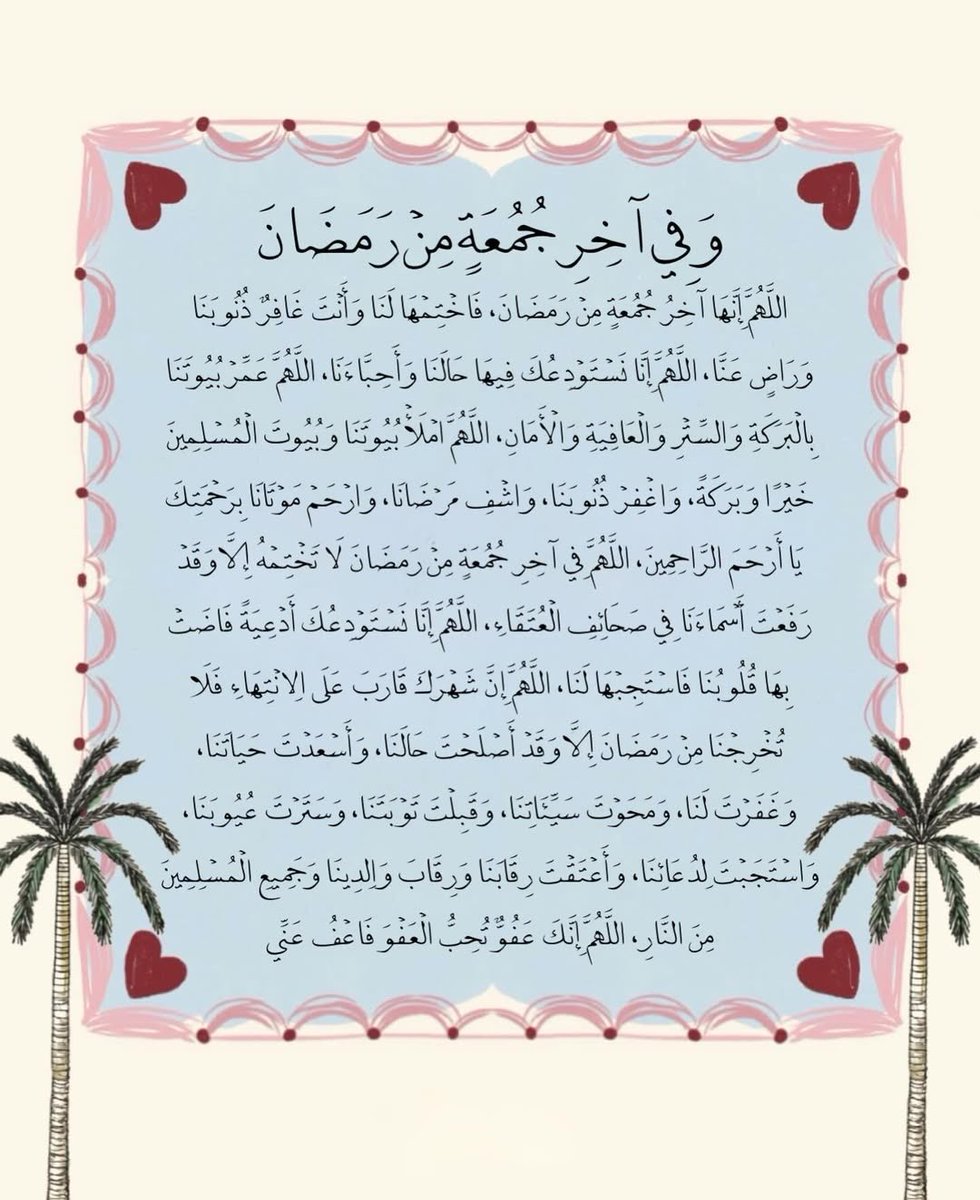 وَفِي آخِرِ جُمُعَةٍ مِنْ رَمَضَانَ
اللَّهُمَّ إِنَّهَا آخِرُ جُمُعَةٍ مِنْ رَمَضَانَ، فَاخْتِمْهَا لَنَا وَأَنْتَ غَافِرٌ ذُنُوبَنَا
وَرَاضٍ عَنَّا، اللَّهُمَّ إِنَّا نَسْتَوْدِعُكَ فِيهَا حَالَنَا وَأَحِبَّاءَنَا، اللَّهُمَّ عَمِّرْ بُيُوتَنَا
بِالْبَرَكَةِ وَالسِّتْرِ وَالْعَافِيَةِ وَالْأَمَانِ، اللَّهُمَّ امْلَأْ بُيُوتَنَا وَبُيُوتَ الْمُسْلِمِينَ
خَيْرًا وَبَرَكَةً، وَاغْفِرْ ذُنُوبَنَا، وَاشْفِ مَرْضَانَا، وَارْحَمْ مَوْتَانَا بِرَحْمَتِكَ
يَا أَرْحَمَ الرَّاحِمِينَ، اللَّهُمَّ فِي آخِرِ جُمُعَةٍ مِنْ رَمَضَانَ لَا تَخْتِمْهُ إِلَّا وَقَدْ
رَفَعْتَ أَسْمَاءَنَا فِي صَحَائِفِ الْعُتَقَاءِ، اللَّهُمَّ إِنَّا نَسْتَوْدِعُكَ أَدْعِيَةً فَاضَتْ
بِهَا قُلُوبُنَا فَاسْتَجِبْهَا لَنَا، اللَّهُمَّ إِنَّ شَهْرَكَ قَارَبَ عَلَى الِانْتِهَاءِ فَلَا
تُخْرِجْنَا مِنْ رَمَضَانَ إِلَّا وَقَدْ أَصْلَحْتَ حَالَنَا، وَأَسْعَدْتَ حَيَاتَنَا،
وَغَفَرْتَ لَنَا، وَمَحَوْتَ سَيِّئَاتِنَا، وَقَبِلْتَ تَوْبَتَنَا، وَسَتَرْتَ عُيُوبَنَا،
وَاسْتَجَبْتَ لِدُعَائِنَا، وَأَعْتَقْتَ رِقَابَنَا وَرِقَابَ وَالِدِينَا وَجَمِيعِ الْمُسْلِمِينَ
مِنَ النَّارِ، اللَّهُمَّ إِنَّكَ عَفُوٌّ تُحِبُّ الْعَفْوَ فَاعْفُ عَنِّي